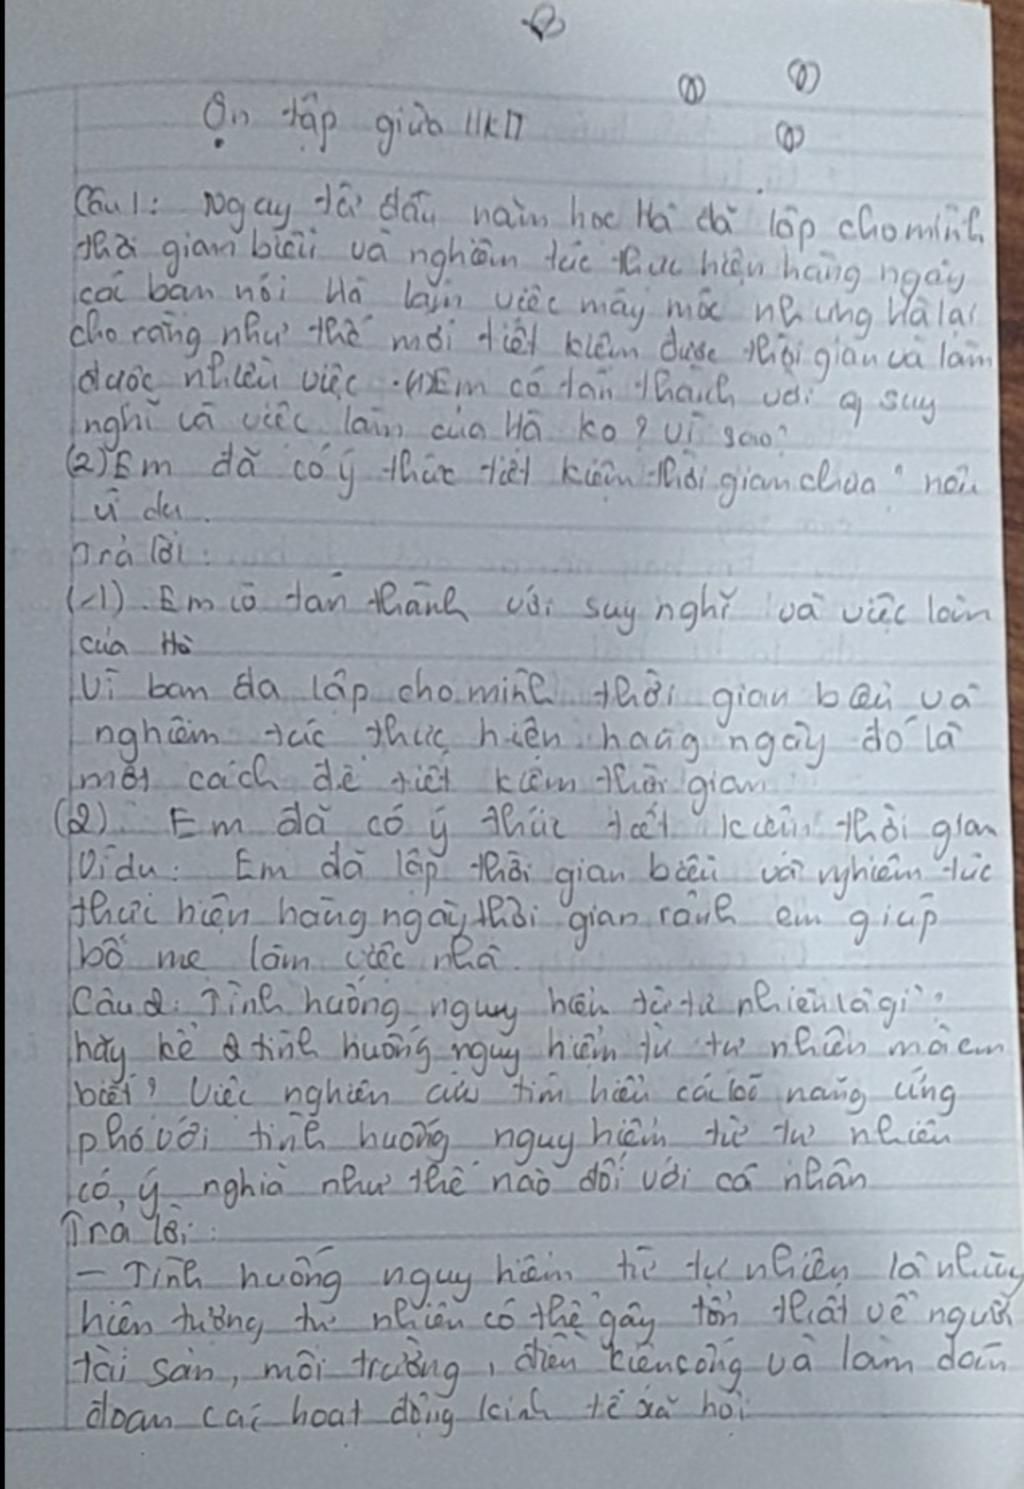 Ôn tập giữa HKII
Câu 1: Ngay từ đầu năm học Hà đã lập cho mình
thời gian biểu và nghiêm túc thực hiện hàng ngày
các bạn nói Hà làm việc máy móc nhưng Hà lại
cho rằng như thế mới tiết kiệm được thời gian và làm
được nhiều việc. (1) Em có tán thành với suy
nghĩ và việc làm của Hà ko? Vì sao?
(2) Em đã có ý thức tiết kiệm thời gian chưa? nêu
ví dụ.
Trả lời:
(1). Em có tán thành với suy nghĩ và việc làm
của Hà
Vì bạn đã lập cho mình thời gian biểu và
nghiêm túc thực hiện hàng ngày đó là
một cách để tiết kiệm thời gian
(2). Em đã có ý thức tiết kiệm thời gian
Ví dụ: Em đã lập thời gian biểu và nghiêm túc
thực hiện hàng ngày, thời gian rảnh em giúp
bố mẹ làm việc nhà.
Câu 2: Tình huống nguy hiểm từ tự nhiên là gì?
hãy kể 2 tình huống nguy hiểm từ tự nhiên mà em
biết? Việc nghiên cứu tìm hiểu các kĩ năng ứng
phó với tình huống nguy hiểm từ tự nhiên
có, ý nghĩa như thế nào đối với cá nhân
Trả lời:
- Tình huống nguy hiểm từ tự nhiên là những
hiện tượng tự nhiên có thể gây tổn thất về người
tài sản, môi trường, điều kiện sống và làm gián
đoạn các hoạt động kinh tế xã hội